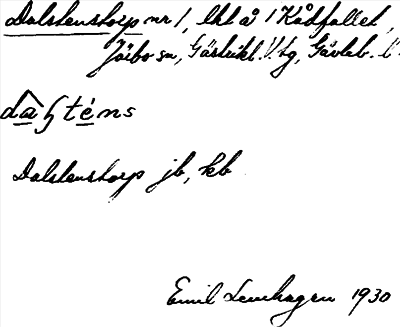 Dalstenstorp nr 1, lht å 1 Kådfallet,
Järbo sn, Gästrikl. V. tg, Gävleb. l.
Dalstenstorp jb, kb
Emil Lewhagen 1930